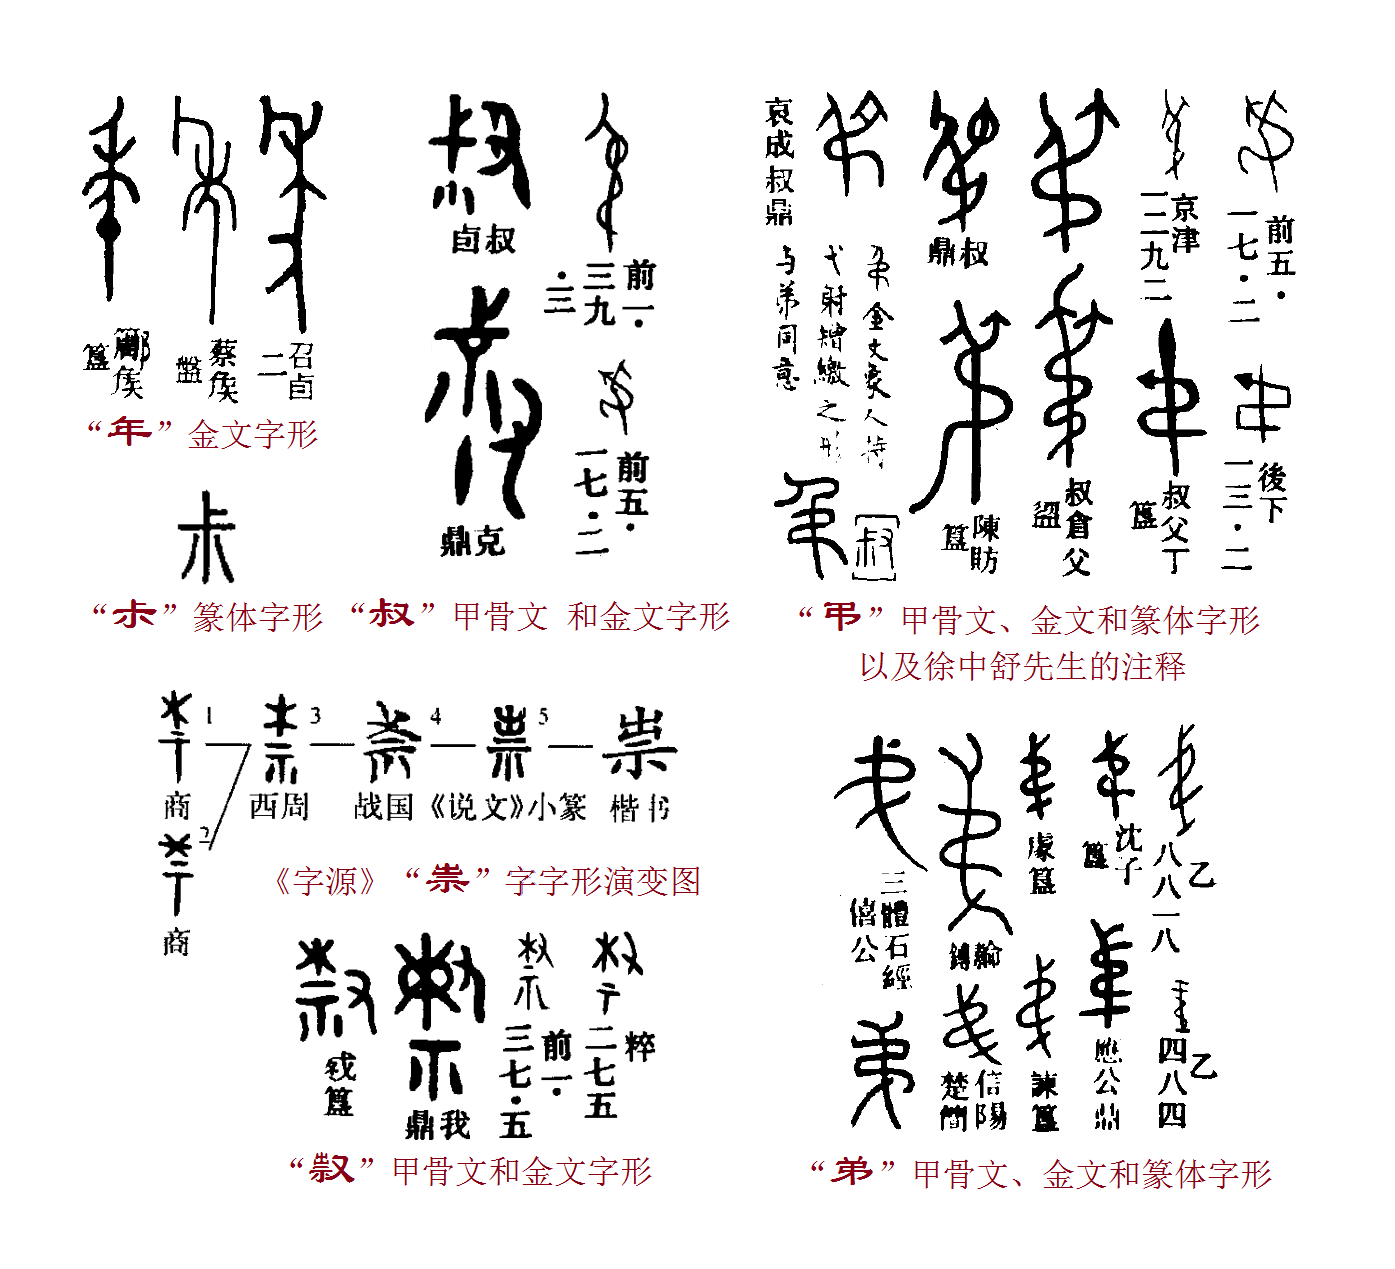 鄘侯簋
蔡侯盤
召卣二
“年”金文字形
“尗”篆体字形
叔卣
克鼎
前一·三九·三
前五·一七·二
“叔”甲骨文 和金文字形
哀成叔鼎
叔鼎
京津一二九二
前五·一七·二
弔金文象人持
弋射矰繳之形
与弟同意
[叔]
陳肪簋
叔倉父盨
叔父丁簋
後下一三·二
“弔”甲骨文、金文和篆体字形
以及徐中舒先生的注释
1
3
4
5
商
西周
战国
《说文》小篆
楷书
2
商
《字源》“祟”字字形演变图
三體石經
僖公
輪鎛
簋
沈子簋
乙八八一八
信陽楚簡
諫簋
應公鼎
乙四八四
簋
我鼎
前一·三七·五
粹二七五
“𣀈”甲骨文和金文字形
“弟”甲骨文、金文和篆体字形